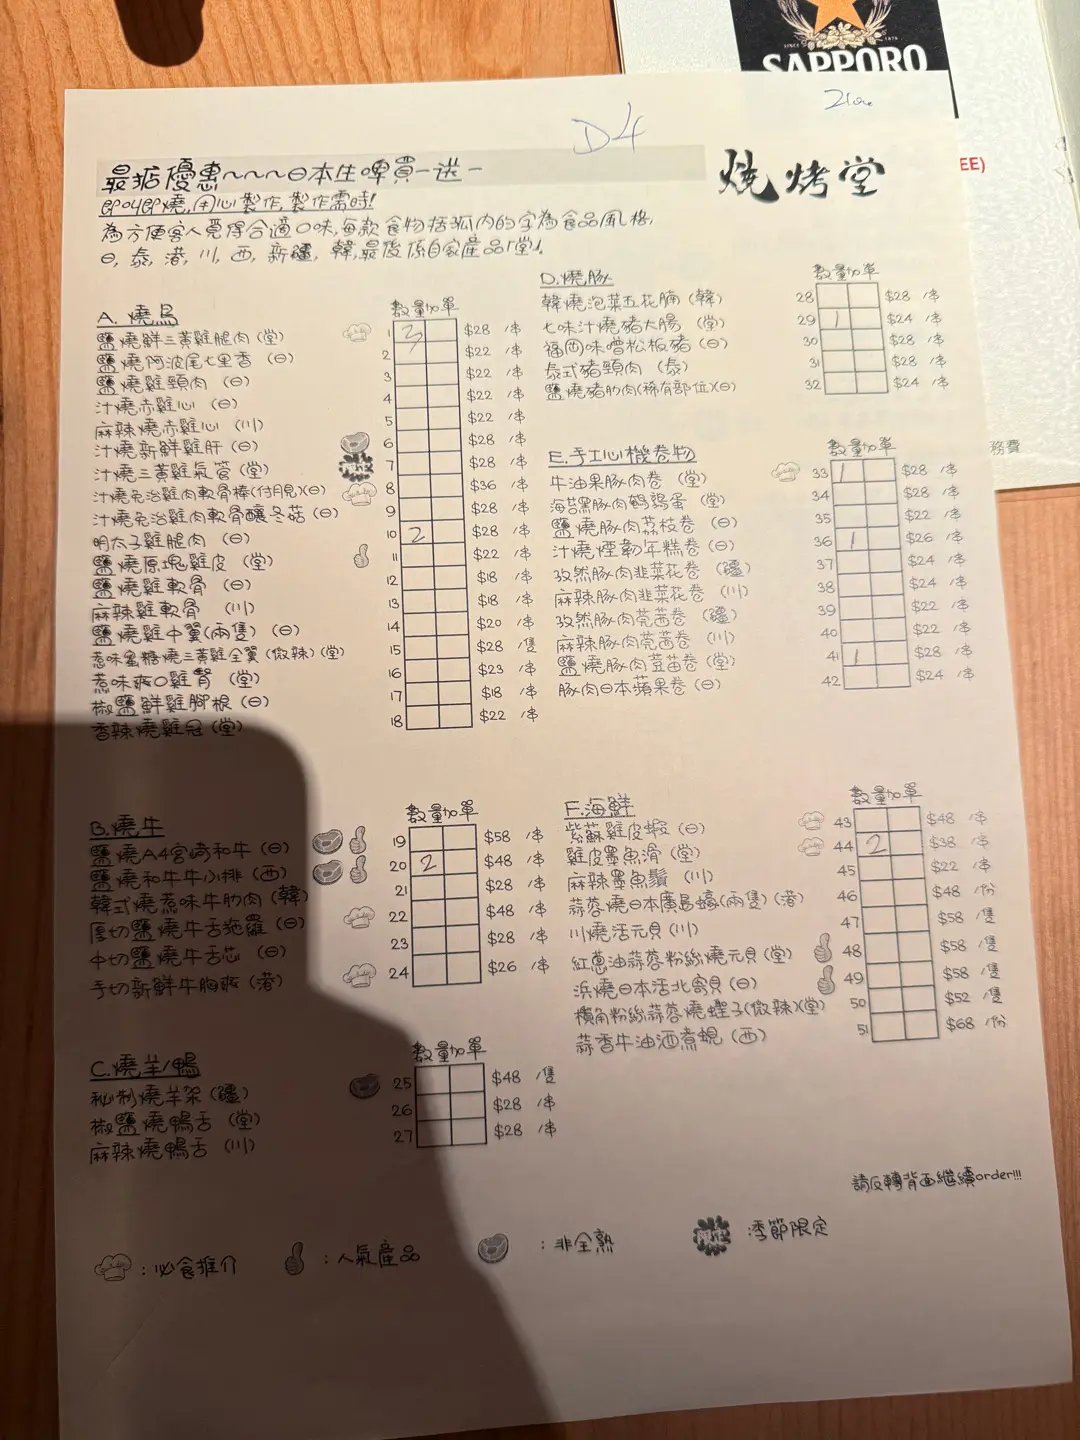 SAPPORO
SINCE 1876
2 Low
D4
EE)
燒烤堂
最抵優惠~~~日本生啤買一送一
即叫即燒,用心製作,製作需時!
為方便客人覓得合適口味,每款食物括弧內的字為食品風格,
日,泰,港,川,西,新疆,韓,最後係自家產品「堂」.
A. 燒鳥 數量 加單
鹽燒鮮三黃雞腿肉(堂) 1 3 $28 /串
鹽燒阿波尾七里香(日) 2 $22 /串
鹽燒雞頸肉(日) 3 $22 /串
汁燒赤雞心(日) 4 $22 /串
麻辣燒赤雞心(川) 5 $22 /串
汁燒新鮮雞肝(日) 6 $28 /串
汁燒三黃雞氣管(堂) 限定 7 $28 /串
汁燒免治雞肉軟骨棒(付月見)(日) 8 $36 /串
汁燒免治雞肉軟骨釀冬菇(日) 9 $28 /串
明太子雞腿肉(日) 10 2 $28 /串
鹽燒原塊雞皮(堂) 11 $22 /串
鹽燒雞軟骨(日) 12 $18 /串
麻辣雞軟骨(川) 13 $18 /串
鹽燒雞中翼(兩隻)(日) 14 $20 /串
惹味蜜糖燒三黃雞全翼(微辣)(堂) 15 $28 /隻
惹味爽口雞腎(堂) 16 $23 /串
椒鹽鮮雞腳根(日) 17 $18 /串
香辣燒雞冠(堂) 18 $22 /串
B.燒牛 數量 加單
鹽燒A4宮崎和牛(日) 19 $58 /串
鹽燒和牛牛小排(西) 20 2 $48 /串
韓式燒惹味牛肋肉(韓) 21 $28 /串
厚切鹽燒牛舌拖羅(日) 22 $48 /串
中切鹽燒牛舌芯(日) 23 $28 /串
手切新鮮牛胸爽(港) 24 $26 /串
C.燒羊/鴨 數量 加單
秘制燒羊架(疆) 25 $48 /隻
椒鹽燒鴨舌(堂) 26 $28 /串
麻辣燒鴨舌(川) 27 $28 /串
D.燒豚 數量 加單
韓燒泡菜五花腩(韓) 28 $28 /串
七味汁燒豬大腸(堂) 29 1 $24 /串
福岡味噌松板豬(日) 30 $28 /串
泰式豬頸肉(泰) 31 $28 /串
鹽燒豬肋肉(稀有部位)(日) 32 $24 /串
E.手工心機卷物 數量 加單
務費
牛油果豚肉卷(堂) 33 1 $28 /串
海苔黑豚肉鵪鶉蛋(堂) 34 $28 /串
鹽燒豚肉荔枝卷(日) 35 $22 /串
汁燒煙韌年糕卷(日) 36 1 $26 /串
孜然豚肉韭菜花卷(疆) 37 $24 /串
麻辣豚肉韭菜花卷(川) 38 $24 /串
孜然豚肉芫茜卷(疆) 39 $22 /串
麻辣豚肉芫茜卷(川) 40 $22 /串
鹽燒豚肉荳苗卷(堂) 41 1 $28 /串
豚肉日本蘋果卷(日) 42 $24 /串
F.海鮮 數量 加單
紫蘇雞皮蝦(日) 43 $48 /串
雞皮墨魚滑(堂) 44 2 $38 /串
麻辣墨魚鬚(川) 45 $22 /串
蒜蓉燒日本廣島蠔(兩隻)(港) 46 $48 /份
川燒活元貝(川) 47 $58 /隻
紅蔥油蒜蓉粉絲燒元貝(堂) 48 $58 /隻
浜燒日本活北寄貝(日) 49 $58 /隻
欖角粉絲蒜蓉燒蟶子(微辣)(堂) 50 $52 /隻
蒜香牛油酒煮蜆(西) 51 $68 /份
請反轉背面繼續order!!!
:必食推介
:人氣產品
:非全熟
限定 :季節限定